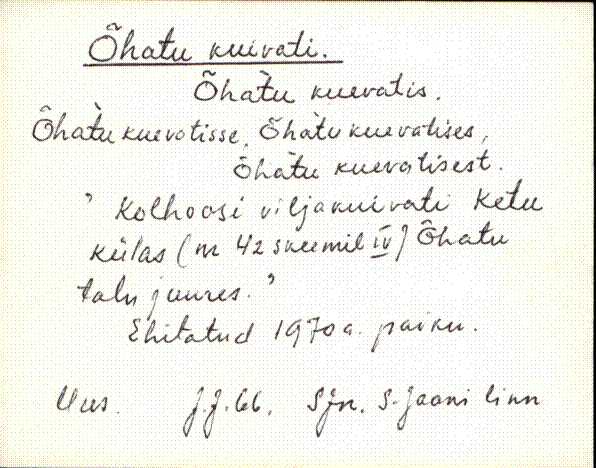 Õhatu kuivati.
Õhàtu kuevatis.
Õhàtu kuevatisse, Õhàtu kuevatises,
Õhàtu kuevatisest.
" Kolhoosi viljakuivati Ketu
külas (nr 42 skeemil IV) Õhatu
talu juures."
Ehitatud 1970a. paiku.
Uus. J.J. 66. SJn. S-Jaani linn